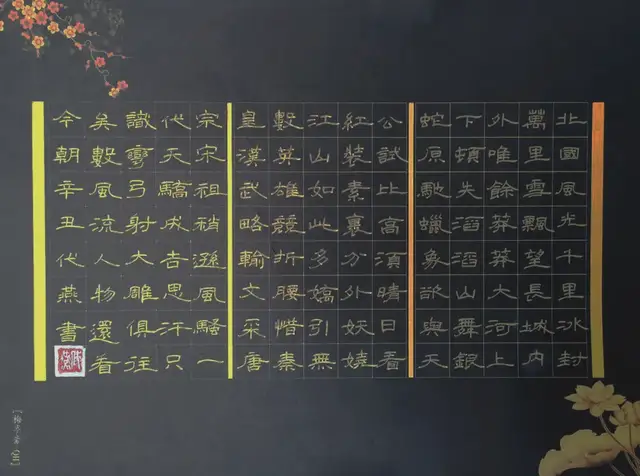 北國風光千里冰封
萬里雪飄望長城內
外唯餘莽莽大河上
下頓失滔滔山舞銀
蛇原馳蠟象欲與天
公試比高湏晴日看
紅裝素裹分外妖嬈
江山如此多嬌引無
數英雄競折腰惜秦
皇漢武略輸文采唐
宗宋祖稍遜風騷一
代天驕成吉思汗只
識彎弓射大雕俱往
矣數風流人物還看
今朝辛丑代燕書